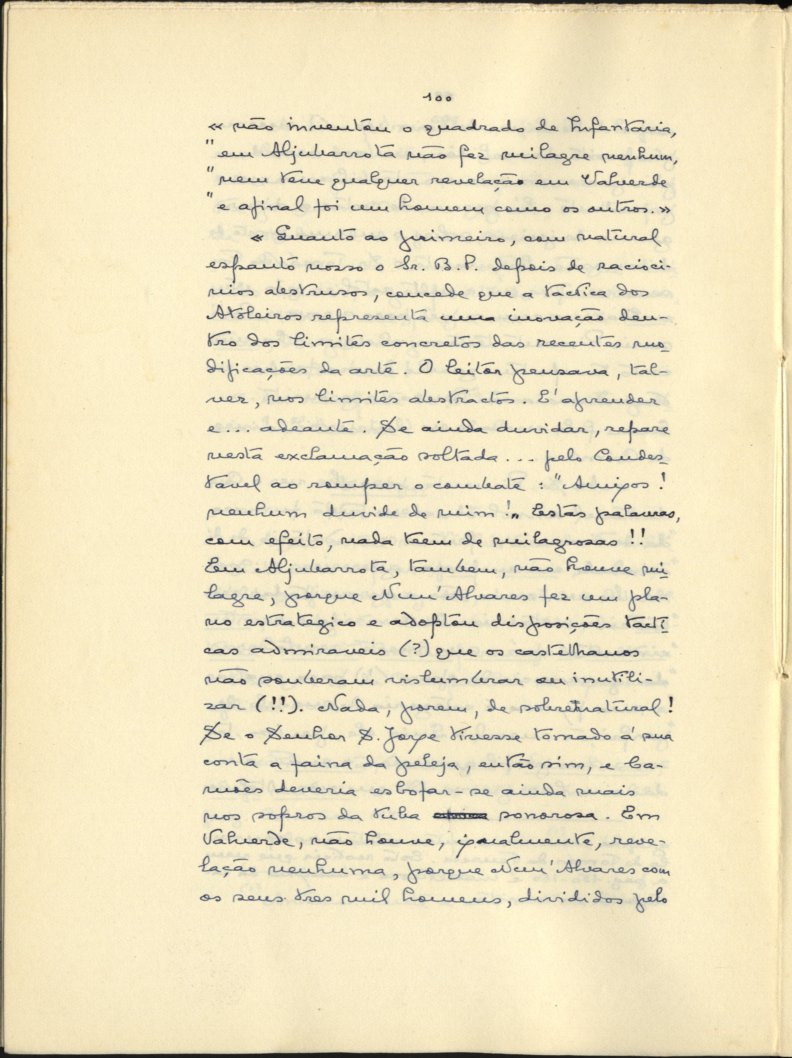 100
« não inventou o quadrado de Infantaria,
" em Aljubarrota não fez milagre nenhum,
" nem teve qualquer revelação em Valverde
" e afinal foi um homem como os outros. »
« Quanto ao primeiro, com natural
espanto nosso o Sr. B. P. depois de racioci-
nios abstrusos, concede que a tactica dos
Atoleiros representa uma inovação den-
tro dos limites concretos das recentes mo-
dificações da arte. O leitor pensava, tal-
vez, nos limites abstractos. E' aprender
e... adeante. Se ainda duvidar, repare
nesta exclamação soltada... pelo Condes-
tavel ao romper o combate : "Amigos !
nenhum duvide de mim !„ Estas palavras,
com efeito, nada teem de milagrosas !!
Em Aljubarrota, tambem, não houve mi-
lagre, porque Nun'Alvares fez um pla-
no estrategico e adoptou disposições tacti-
cas admiraveis (?) que os castelhanos
não souberam vislumbrar ou inutili-
sar (!!). Nada, porem, de sobrenatural !
Se o Senhor S. Jorge tivesse tomado á sua
conta a faina da peleja, então sim, e Ca-
mões deveria esbofar-se ainda mais
nos sopros da tuba sonorosa. Em
Valverde, não houve, igualmente, reve-
lação nenhuma, porque Nun'Alvares com
os seus tres mil homens, divididos pelo